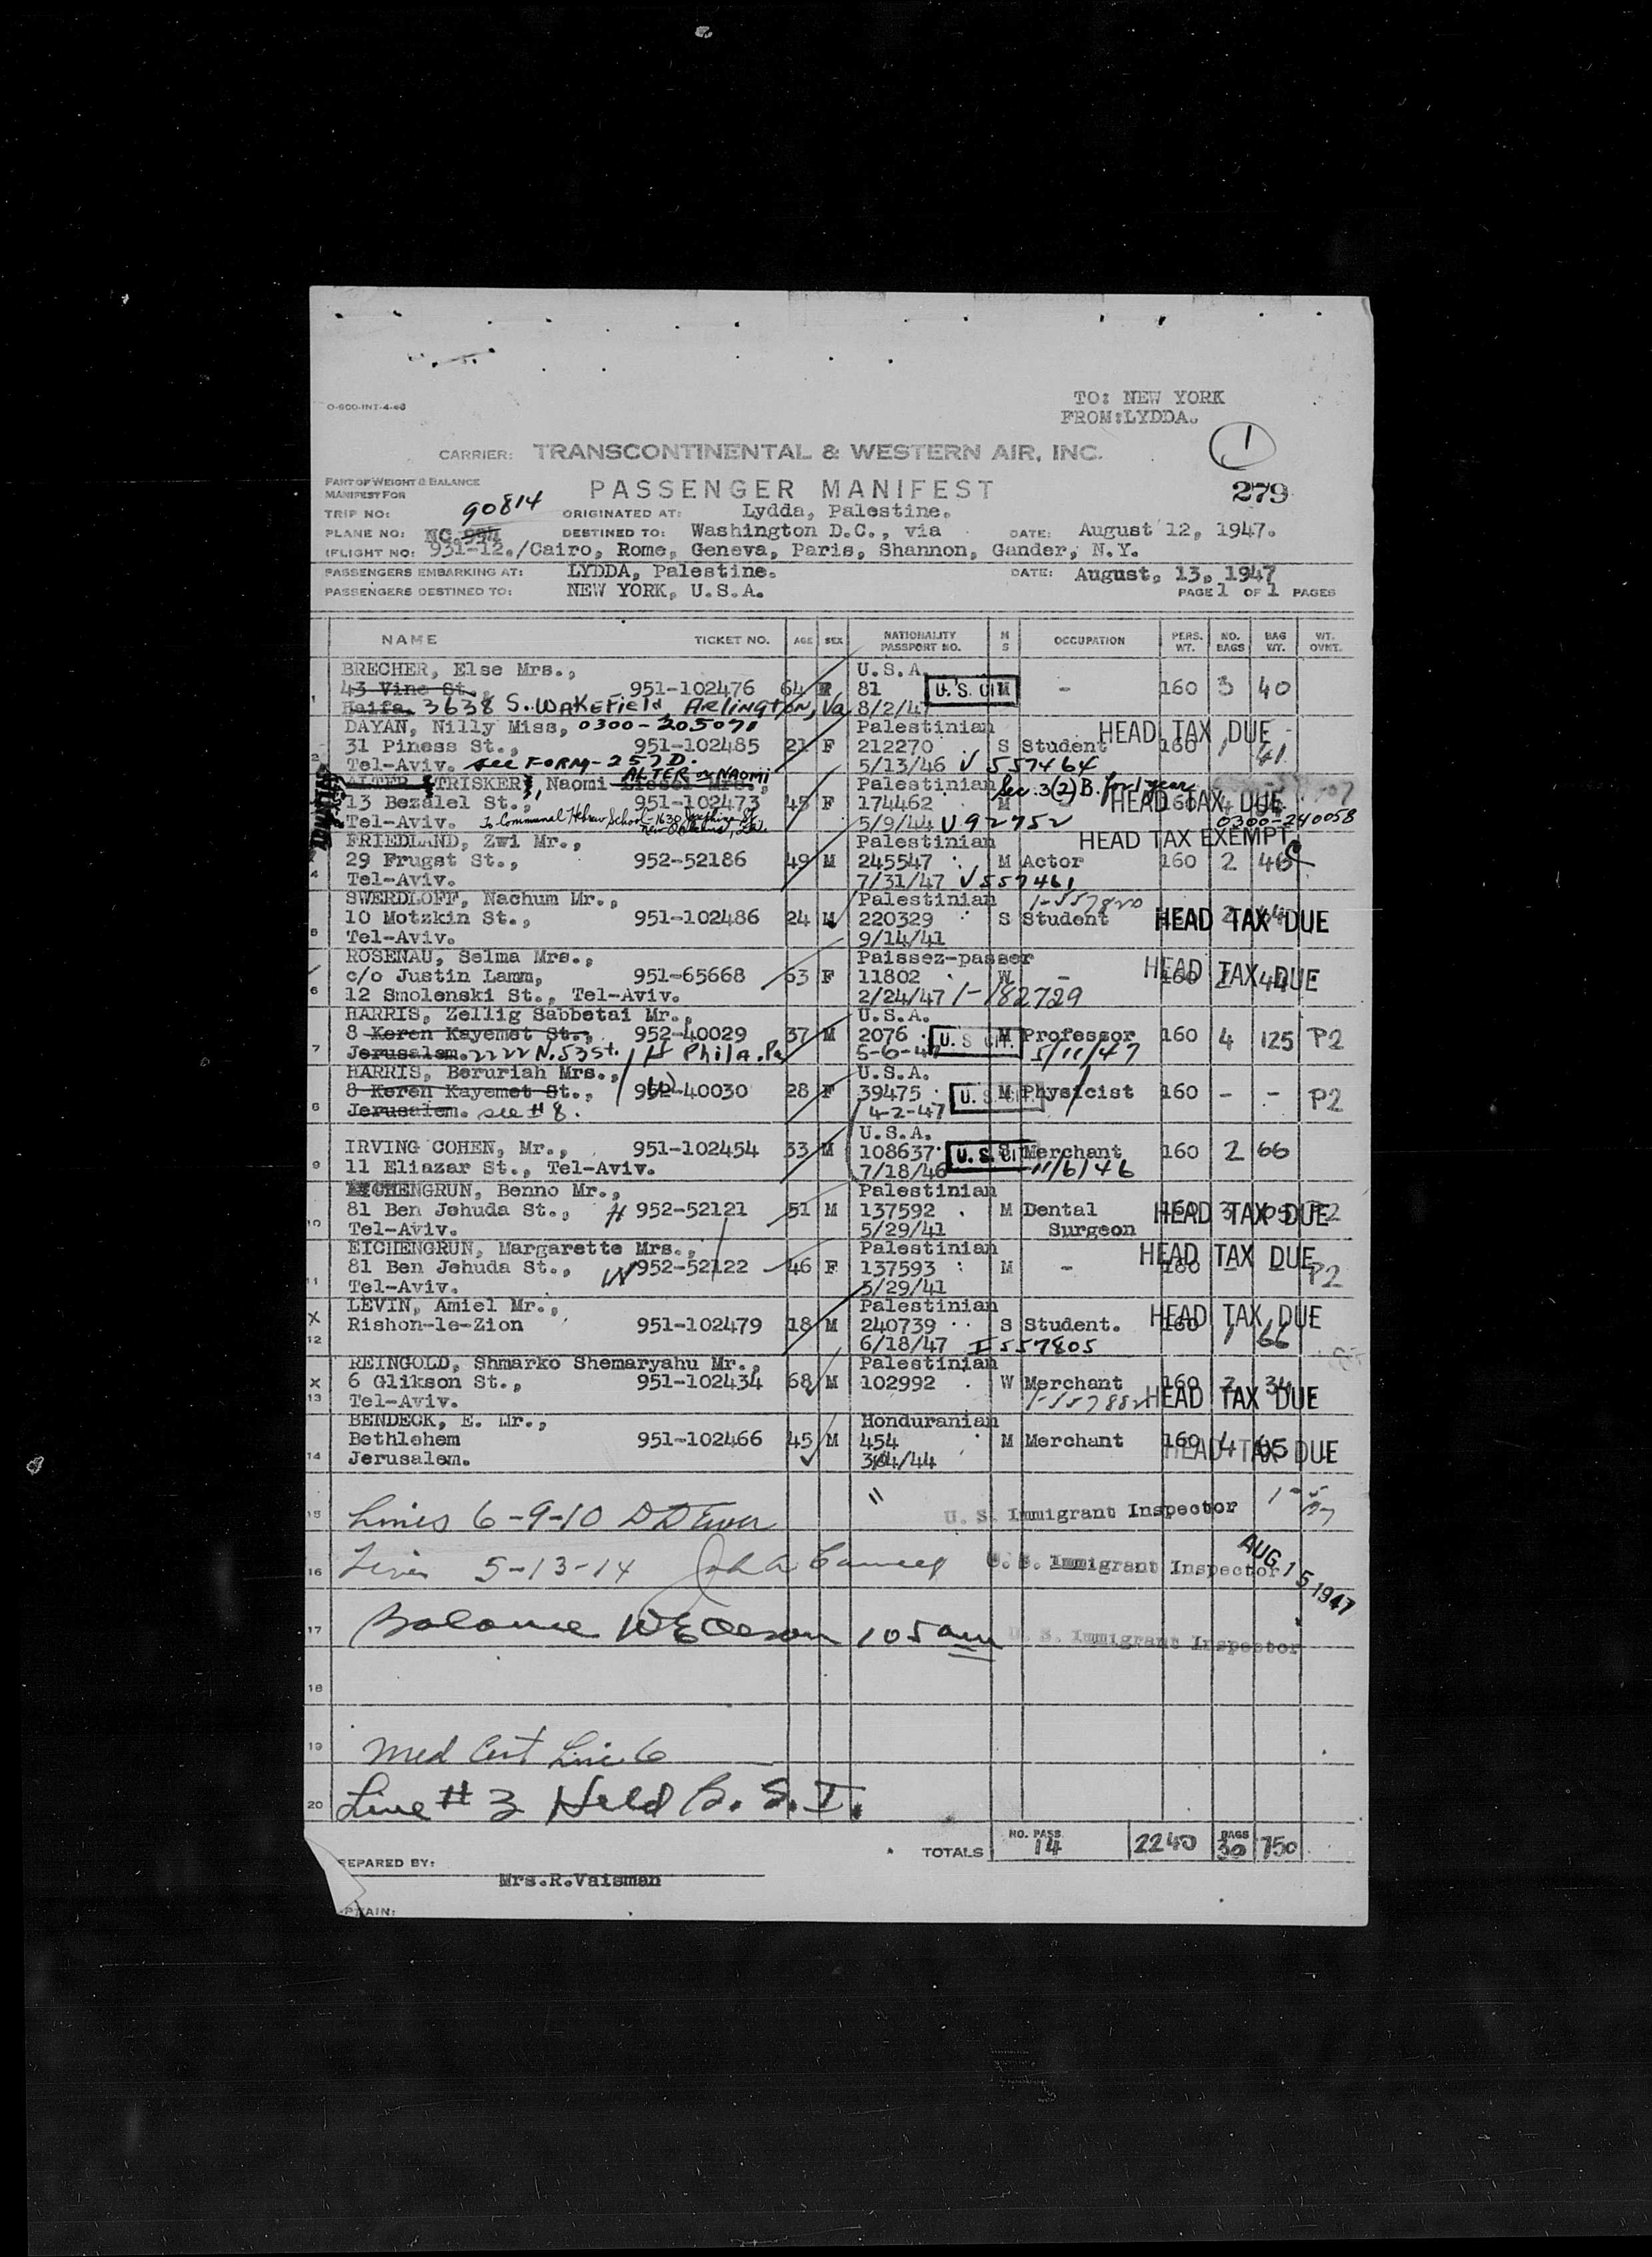 TO: NEW YORK
FROM:LYDDA.
O-600-INT-4-46
1
CARRIER: TRANSCONTINENTAL & WESTERN AIR, INC.
PART OF WEIGHT & BALANCE
MANIFEST FOR
PASSENGER MANIFEST
279
TRIP NO: 90814 ORIGINATED AT: Lydda, Palestine.
PLANE NO: NC DESTINED TO: Washington D.C., via DATE: August 12, 1947.
(FLIGHT NO: 931-12./Cairo, Rome, Geneva, Paris, Shannon, Gander, N.Y.
PASSENGERS EMBARKING AT: LYDDA, Palestine. DATE: August, 13, 1947
PASSENGERS DESTINED TO: NEW YORK, U.S.A. PAGE 1 OF 1 PAGES
NAME TICKET NO. AGE SEX NATIONALITY PASSPORT NO. M S OCCUPATION PERS. WT. NO. BAGS BAG WT. WT. OVNT.
BRECHER, Else Mrs., U.S.A.
1 43 Vine St., 951-102476 64 F 81 U.S. CIT M - 160 3 40
Haifa. 3638 S. WAKEFIELD, ARLINGTON, Va 8/2/47
DAYAN, Nilly Miss, 0300-205071 Palestinian HEAD TAX DUE
2 31 Piness St., 951-102485 21 F 212270 S Student 160 1 41
Tel-Aviv. see FORM-257D. 5/13/46 V 557464
ALTER (TRISKER), Naomi Mrs., ALTER or NAOMI Palestinian Sec. 3(2)B. for 1 year
13 Bezalel St., 951-102473 45 F 174462 M HEAD TAX DUE
Tel-Aviv. To Communal Hebrew School-1630 Josephine St New Orleans, La. 5/9/44 U92752 0300-240058
FRIEDLAND, Zwi Mr., Palestinian HEAD TAX EXEMPT
4 29 Frugst St., 952-52186 49 M 245547 M Actor 160 2 46
Tel-Aviv. 7/31/47 V557461
SWERDLOFF, Nachum Mr., Palestinian 1-557820
5 10 Motzkin St., 951-102486 24 M 220329 S Student HEAD TAX DUE
Tel-Aviv. 9/14/41
ROSENAU, Selma Mrs., Paissez-passer
c/o Justin Lamm, 951-65668 63 F 11802 W - HEAD TAX DUE
6 12 Smolenski St., Tel-Aviv. 2/24/47 1-182729
HARRIS, Zellig Sabbetai Mr., U.S.A.
8 Keren Kayemet St., 952-40029 37 M 2076 U.S CIT. M Professor 160 4 125 P2
7 Jerusalem. 2222 N. 53 St. H Phila. Pa 5-6-47 5/11/47
HARRIS, Beruriah Mrs., U.S.A.
8 Keren Kayemet St., W 952-40030 28 F 39475 U.S. CIT. M Physicist 160 - - P2
8 Jerusalem. see #8. 4-2-47
U.S.A.
IRVING COHEN, Mr., 951-102454 33 M 108637 U.S. CIT S Merchant 160 2 66
9 11 Eliazar St., Tel-Aviv. 7/18/46 11/6/46
EICHENGRUN, Benno Mr., Palestinian
81 Ben Jehuda St., H 952-52121 51 M 137592 M Dental HEAD TAX DUE P2
10 Tel-Aviv. 5/29/41 Surgeon
EICHENGRUN, Margarette Mrs., Palestinian HEAD TAX DUE
81 Ben Jehuda St., W 952-52122 46 F 137593 M - 160 - - P2
11 Tel-Aviv. 5/29/41
LEVIN, Amiel Mr., Palestinian HEAD TAX DUE
X Rishon-le-Zion 951-102479 18 M 240739 S Student. 160 1 66
12 6/18/47 I 557805
REINGOLD, Shmarko Shemaryahu Mr., Palestinian
X 6 Glikson St., 951-102434 68 M 102992 W Merchant 160 2 34
13 Tel-Aviv. HEAD TAX DUE
BENDECK, E. Mr., Honduranian
Bethlehem 951-102466 45 M 454 M Merchant 160 4 65
14 Jerusalem. HEAD TAX DUE
15 Lines 6-9-10 " U. S. Immigrant Inspector
16 Lines 5-13-14 U. S. Immigrant Inspector AUG 15 1947
17 Balance 105 am U. S. Immigrant Inspector
18
19 Med Cert Line 6
20 Line #3 Held B. S. I.
TOTALS NO. PASS. 14 2240 BAGS 30 750
EPARED BY: Mrs.R.Vaisman
PTAIN: